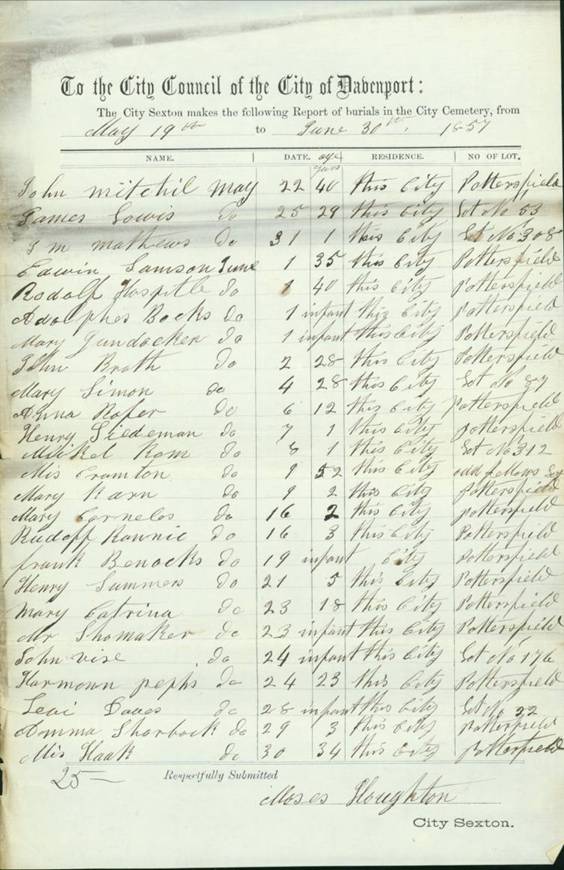 To the City Council of the City of Davenport:
The City Sexton makes the following Report of burials in the City Cemetery, from
May 19th to June 30th, 1857
NAME. DATE. age years RESIDENCE. NO OF LOT.
John Mitchil May 22 40 this City Pottersfield
James Lowis do 25 29 this City Lot No 53
J m mathews do 31 1 this City Lot No 308
Edwin Lamson June 1 35 this City Pottersfield
Rodolf Hospitle do 1 40 this City Pottersfield
Adolphes Bocks do 1 infant this City Pottersfield
Mary Gundacker do 1 infant this City Pottersfield
John Brath do 2 28 this City Pottersfield
Mary Simon do 4 28 this City Lot No 87
Anna Rofer do 6 12 this City Pottersfield
Henry Siedeman do 7 1 this City Pottersfield
Mickel Kom do 8 1 this City Lot No 312
Mis Cramton do 9 52 this City odd fellows Lot
Mary Karn do 9 2 this City Pottersfield
Mary Cornelos do 16 2 this City Pottersfield
Rudoff Rownic do 16 3 this City Pottersfield
frank Benocks do 19 infant City Pottersfield
Henry Summers do 21 5 this City Pottersfield
Mary Catrina do 23 18 this City Pottersfield
Mr Shomaker do 23 infant this City Pottersfield
John vise do 24 infant this City Lot No 176
Harmonn pephs do 24 23 this City Pottersfield
Levi Daves do 28 infant this City Lot No 22
Emma Sharbock do 29 3 this City Pottersfield
Mis Haak do 30 34 this City Pottersfield
25 Respectfully Submitted
Moses Houghton
City Sexton.